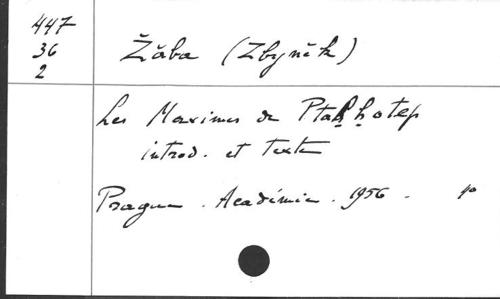 447
36
2
Žába (Zbyněk)
Les Maximes de Ptaḥḥotep
introd. et texte
Prague. Académie. 1956.